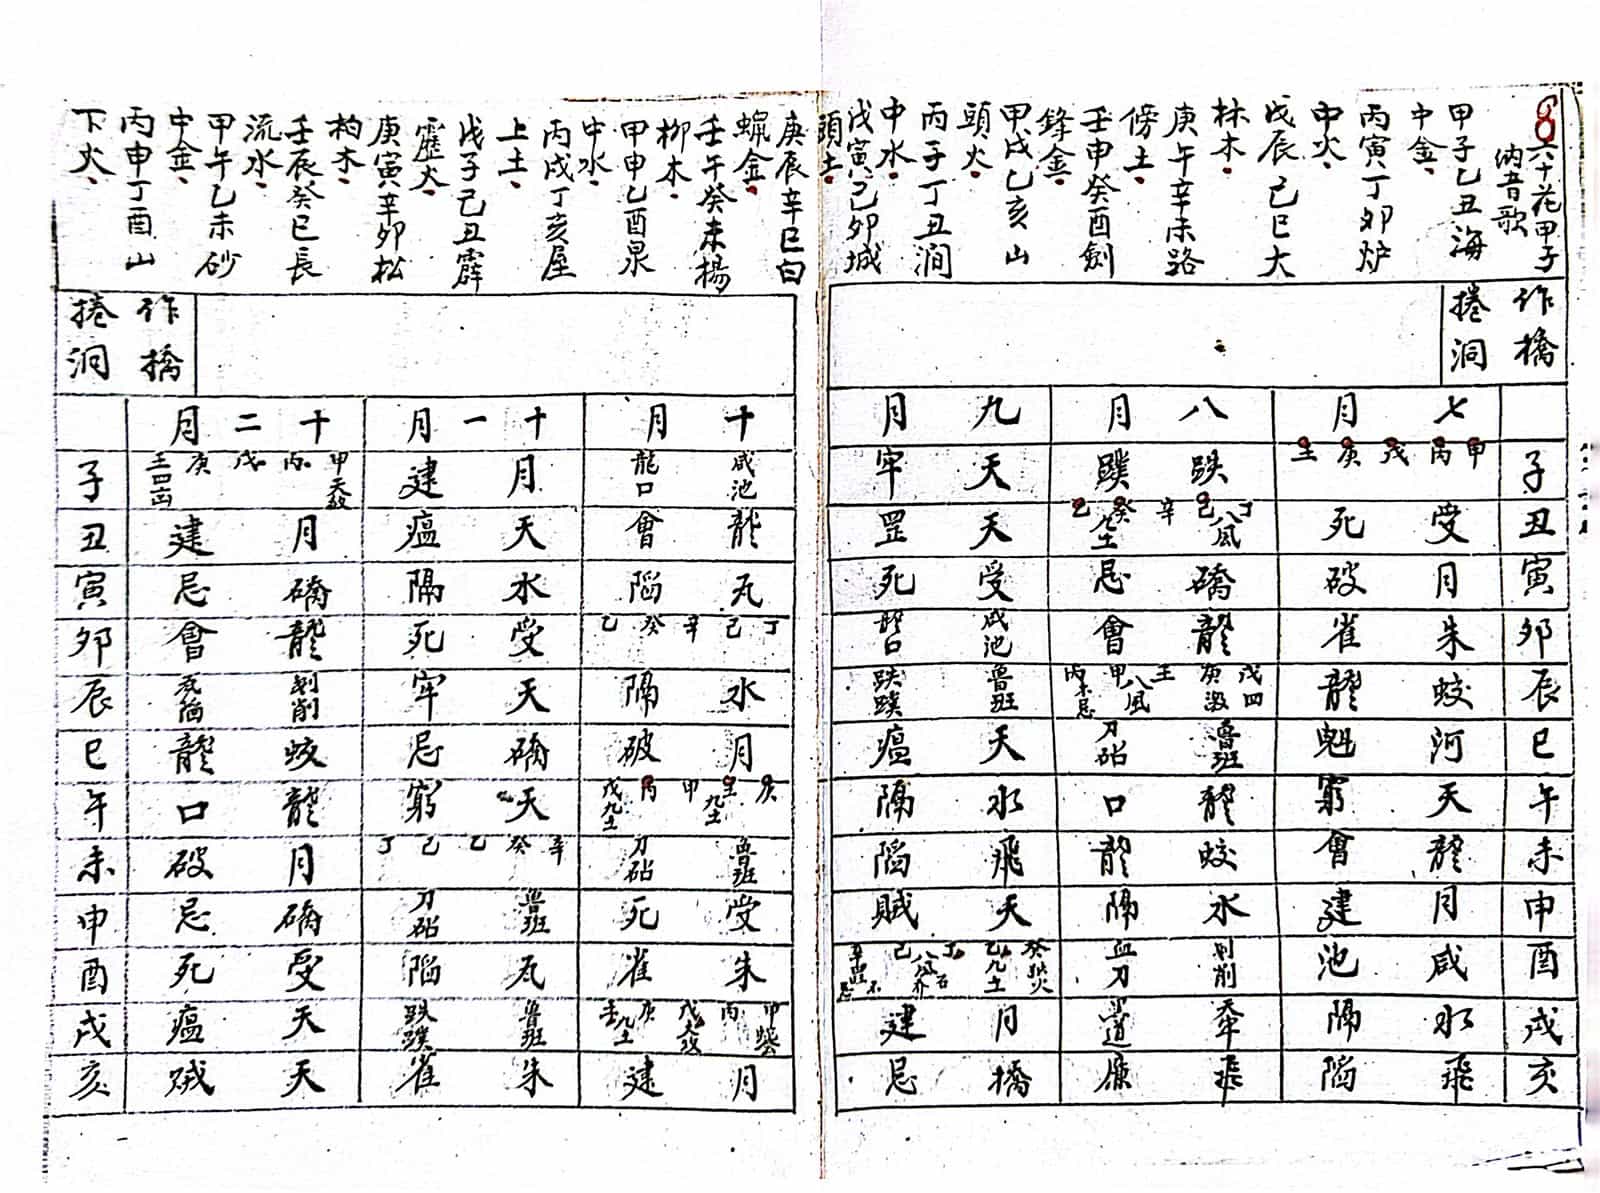 8
六十花甲子
納音歌
甲子乙丑海
中金、
丙寅丁卯炉
中火、
戊辰己巳大
林木、
庚午辛未路
傍土、
壬申癸酉劍
鋒金、
甲戌乙亥山
頭火、
丙子丁丑澗
中水、
戊寅己卯城
頭土、
庚辰辛巳白
蠟金、
壬午癸未楊
柳木、
甲申乙酉泉
中水、
丙戌丁亥屋
上土、
戊子己丑霹
靂火、
庚寅辛卯松
柏木、
壬辰癸巳長
流水、
甲午乙未砂
中金、
丙申丁酉山
下火、
作橋
捲洞
七月 八月 九月
子 甲丙戊庚壬 跌蹼 天牢
丑 受死 丁己辛癸乙 八風 九土 天罡
寅 月破 磽忌 受死
卯 朱雀 龍會 咸池 龍口
辰 蛟龍 戊庚壬甲丙 四激 八風 木忌 魯班 跌蹼
巳 河魁 魯班 刀砧 天瘟
午 天窮 龍口 水隔
未 龍會 蛟龍 飛陷
申 月建 水隔 天賊
酉 咸池 刬削 血刀 癸 乙九土 丁 己八風 辛
戌 水隔 天牢 月建
亥 飛陷 飛廉 橋忌
作橋
捲洞
十月 十一月 十二月
咸池 龍口 月建 甲丙戊庚壬 子
龍會 天瘟 月建 丑
瓦陷 水隔 磽忌 寅
丁己辛癸乙 受死 龍會 卯
水隔 天牢 刬削 瓦陷 辰
月破 磽忌 蛟龍 巳
庚壬甲丙戊 九土 九土 天窮 龍口 午
魯班 刀砧 辛癸乙己丁 月破 未
受死 魯班 刀砧 磽忌 申
朱雀 瓦陷 受死 酉
甲丙戊庚壬 九土 魯班 跌蹼 天瘟 戌
月建 朱雀 天賊 亥